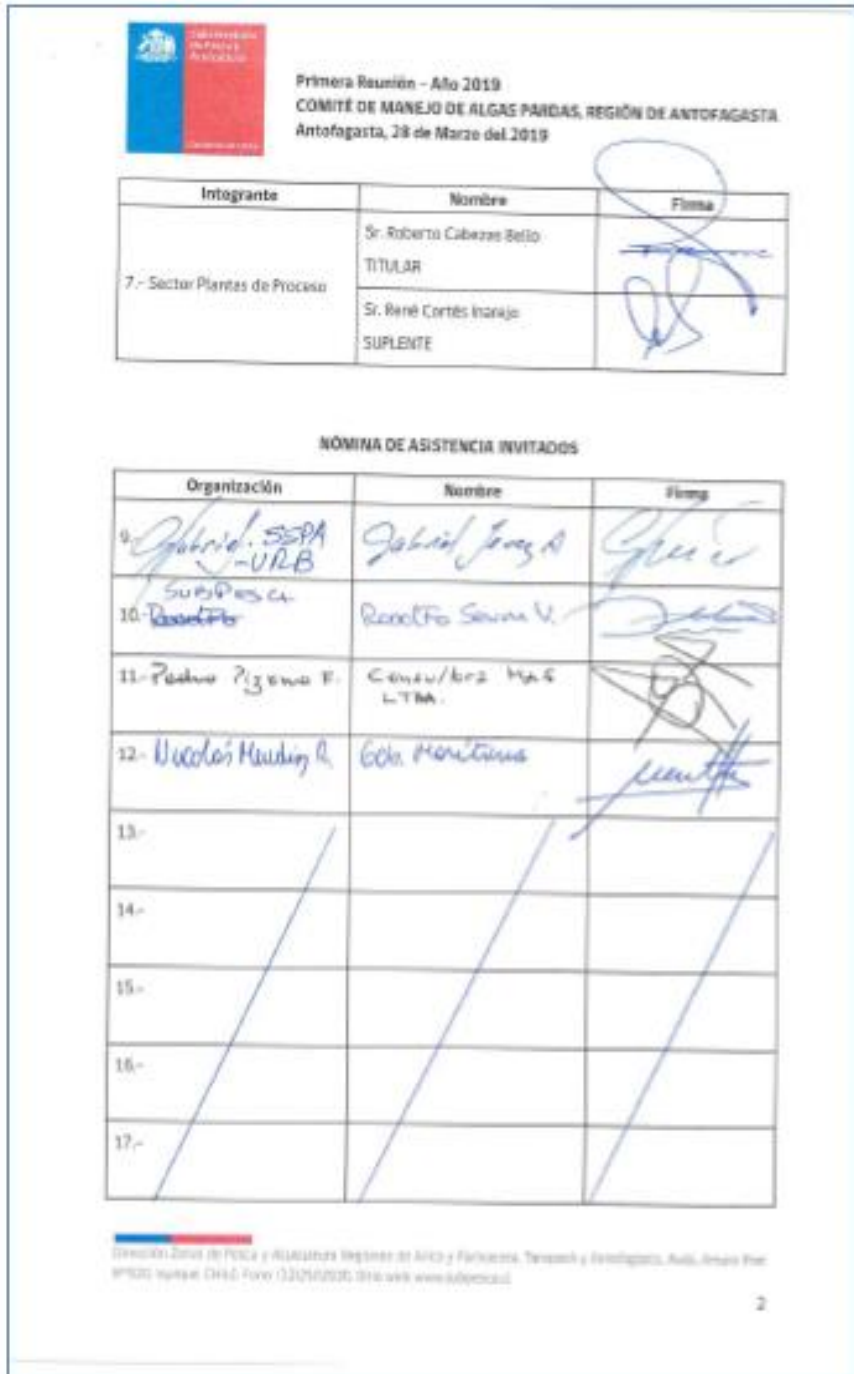 Subsecretaría
de Pesca y
Acuicultura
Gobierno de Chile
Primera Reunión – Año 2019
COMITÉ DE MANEJO DE ALGAS PARDAS, REGIÓN DE ANTOFAGASTA
Antofagasta, 28 de Marzo del 2019
Integrante Nombre Firma
7.- Sector Plantas de Proceso
Sr. Roberto Cabezas Bello
TITULAR
Sr. René Cortés Inarejo
SUPLENTE
NÓMINA DE ASISTENCIA INVITADOS
Organización Nombre Firma
9.- Gabriel. SSPA
-URB
Gabriel Jerez A
10.- SUBPESCA
Rodolfo
Rodolfo Serra V.
11.- Pedro Pizarro F.
LTDA.
12.- Nicolás R. Gob. Marítima
13.-
14.-
15.-
16.-
17.-
Dirección Zonal de Pesca y Acuicultura Regiones de Arica y Parinacota, Tarapacá y Antofagasta, Avda. Arturo Prat
Iquique, CHILE. Fono Sitio web www.subpesca.cl
2